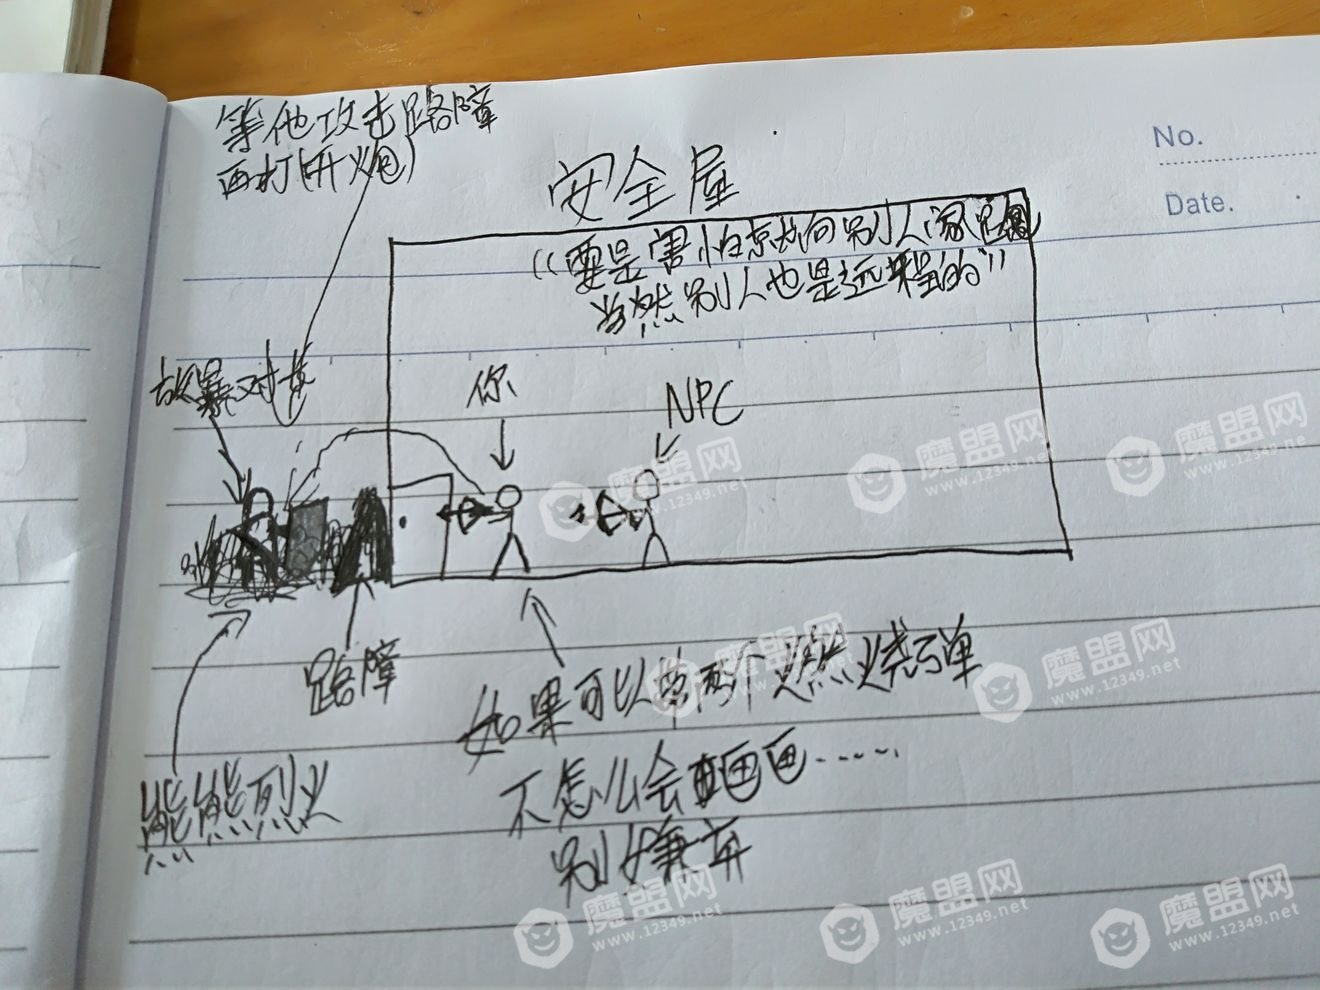 等他攻击路障
再打(开火炮)
No.
Date.
安全屋
"要是害怕京成向别人
当然别人也是远程的"
放暴对者
你
NPC
路障
如果可以带两个燃烧弹
熊熊烈火
不怎么会画画......
别嫌弃
魔盟网
www.12349.net
魔盟网
www.12349.net
魔盟网
www.12349.net
魔盟网
www.12349.net
魔盟网
www.12349.net
魔盟网
www.12349.net
魔盟网
www.12349.net
魔盟网
www.12349.net